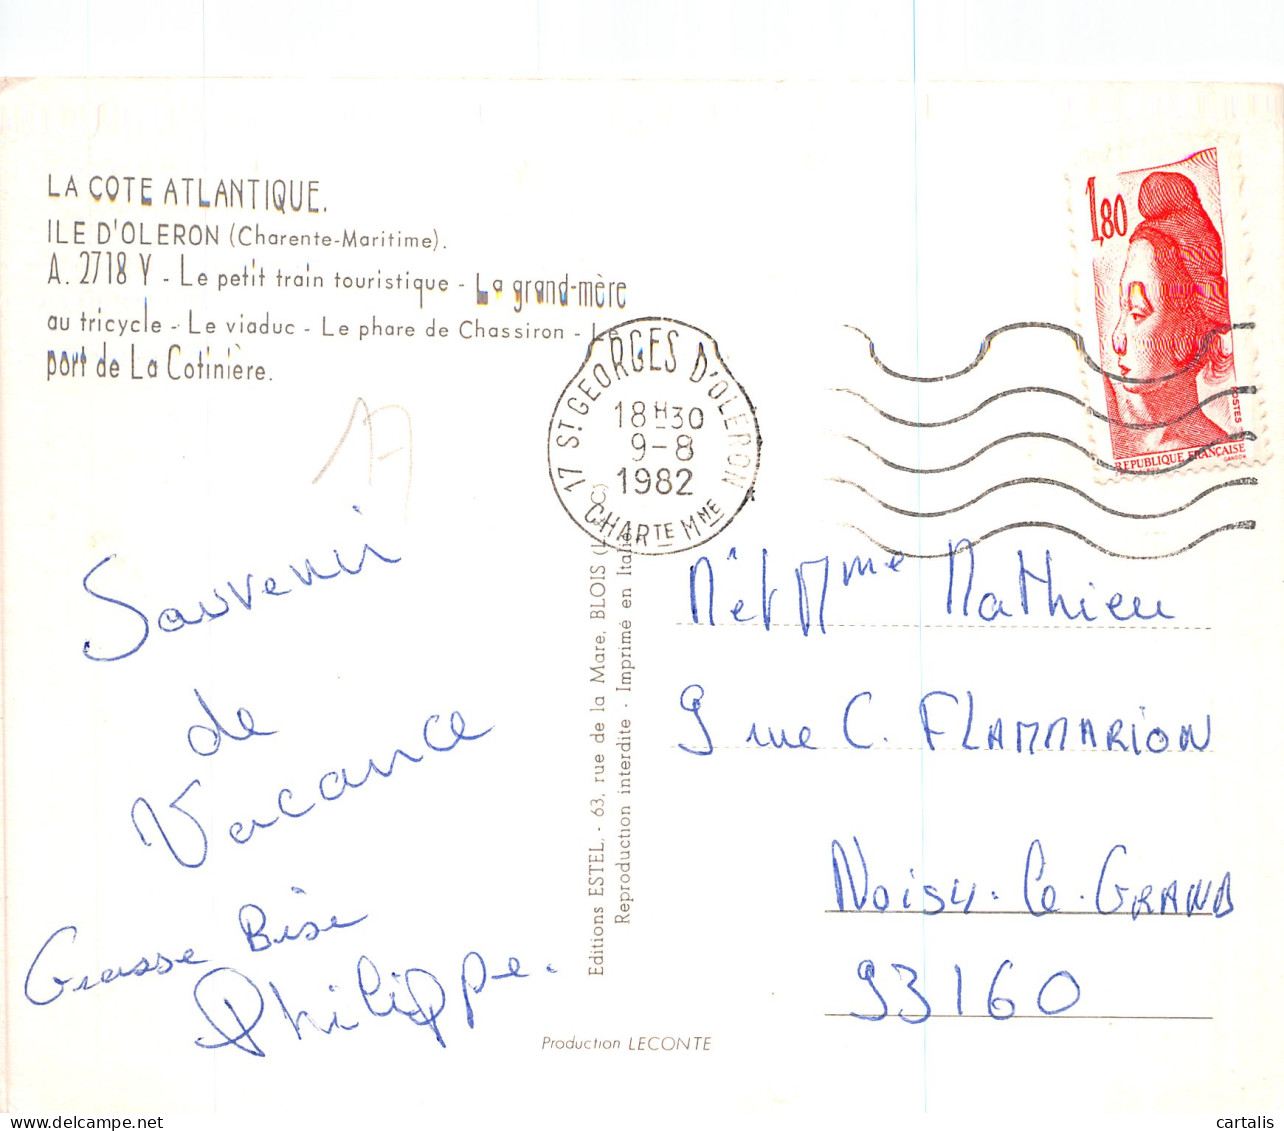 LA COTE ATLANTIQUE.
ILE D'OLERON (Charente-Maritime).
A. 2718 Y - Le petit train touristique - La grand-mère
au tricycle - Le viaduc - Le phare de Chassiron - Le
port de La Cotinière.
17
Souvenir
de
Vacance
Grosse Bise
Philippe.
17 ST GEORGES D'OLERON
18H30
9-8
1982
CHARTE MME
1,80
POSTES
REPUBLIQUE FRANÇAISE
GANDON
Editions ESTEL. - 63, rue de la Mare, BLOIS
Reproduction interdite - Imprimé en Italie
Production LECONTE
Mr et Mme Mathieu
9 rue C. FLAMMARION
Noisy-Le-GRAND
93160
cartalis